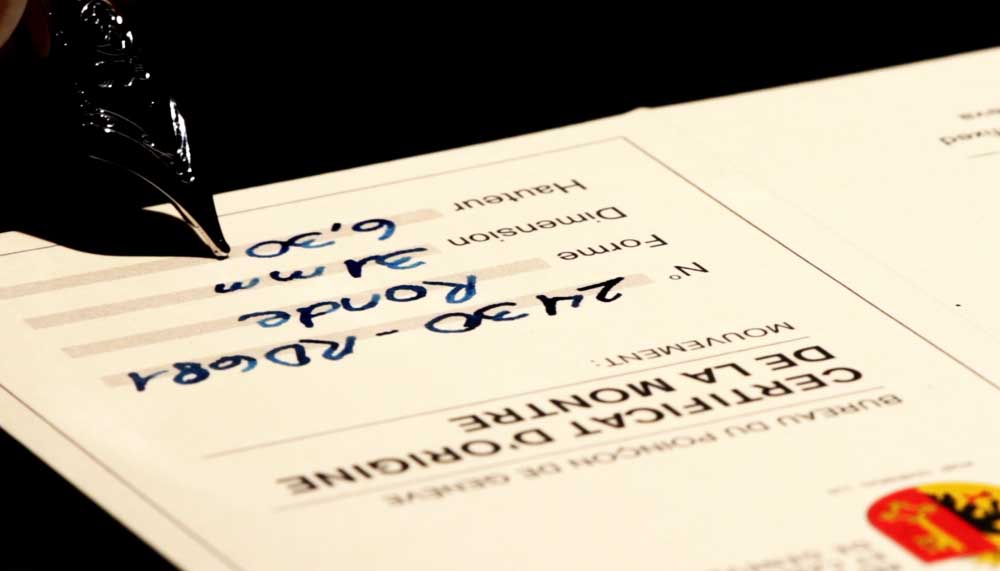 BUREAU DU POINÇON DE GENÈVE
CERTIFICAT D'ORIGINE
DE LA MONTRE
MOUVEMENT:
N° 2430 - RD6881
Forme Ronde
Dimension 31 mm
Hauteur 6,30